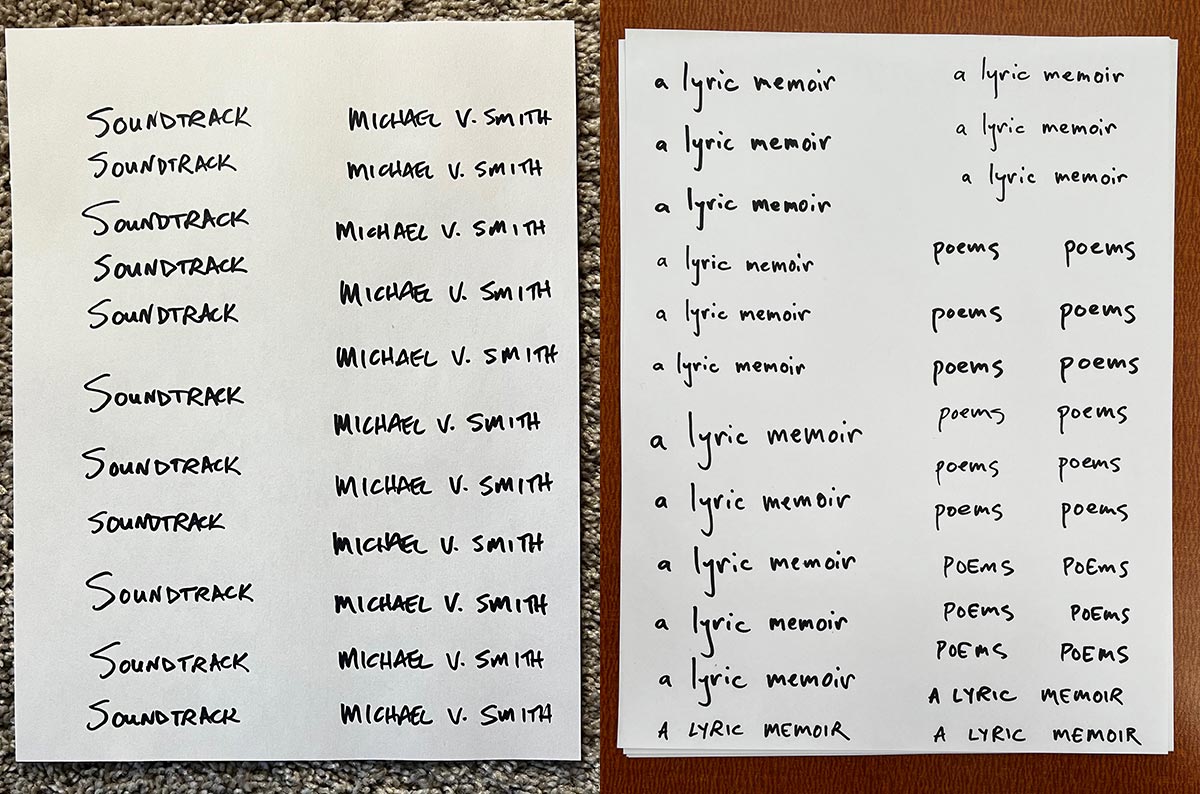 SOUNDTRACK
SOUNDTRACK
SOUNDTRACK
SOUNDTRACK
SOUNDTRACK
SOUNDTRACK
SOUNDTRACK
SOUNDTRACK
SOUNDTRACK
SOUNDTRACK
SOUNDTRACK
MICHAEL V. SMITH
MICHAEL V. SMITH
MICHAEL V. SMITH
MICHAEL V. SMITH
MICHAEL V. SMITH
MICHAEL V. SMITH
MICHAEL V. SMITH
MICHAEL V. SMITH
MICHAEL V. SMITH
MICHAEL V. SMITH
MICHAEL V. SMITH
a lyric memoir
a lyric memoir
a lyric memoir
a lyric memoir
a lyric memoir
a lyric memoir
a lyric memoir
a lyric memoir
a lyric memoir
a lyric memoir
a lyric memoir
A LYRIC MEMOIR
a lyric memoir
a lyric memoir
a lyric memoir
poems poems
poems poems
poems poems
poems poems
poems poems
poems poems
POEMS POEMS
POEMS POEMS
POEMS POEMS
A LYRIC MEMOIR
A LYRIC MEMOIR